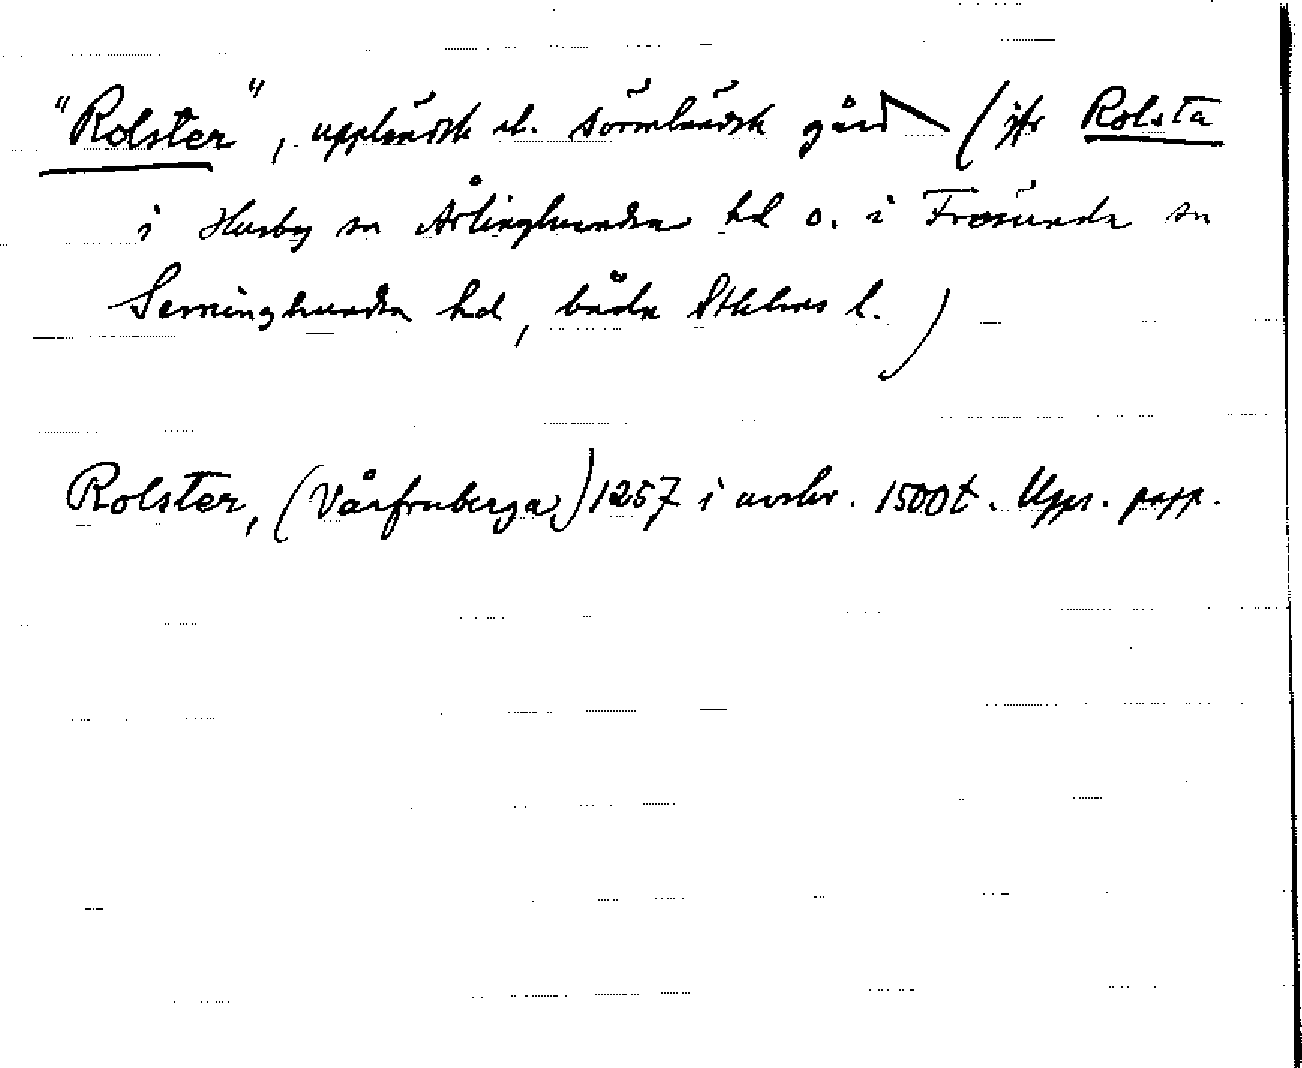 "Rolster", uppländsk el. sörmländsk gård (jfr Rolsta
i Husby sn Ärlinghundra hd o. i Frösunda sn
Seminghundra hd, båda Sthlms l.)
Rolster, (Vårfruberga) 1257 i avskr. 1500t. Upps. papp.